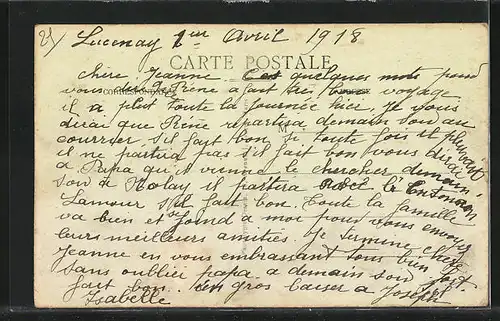 2) Lucenay 1er Avril 1918
CARTE POSTALE
CORRESPONDANCE
chère Jeanne C'est quelques mots pour
vous dire Réne a fait très bon voyage
il a plut toute la journée hier, Je vous
dirai que Réne repartira demain soir au
courrier s'il fait bon si toute fois il pleuvait
il ne partira pas s'il fait bon vous direz
a Papa qu'il vienne le chercher demain
soir a Molay il partira avec le
Lamour s'il fait bon. Toute la famille
va bien et se joind a moi pour vous envoyer
leurs meilleurs amitiés. Je termine chère
Jeanne en vous embrassant tous bien fort
sans oublier papa a demain soir s'il
fait bon. un gros baiser a Joseph
Isabelle